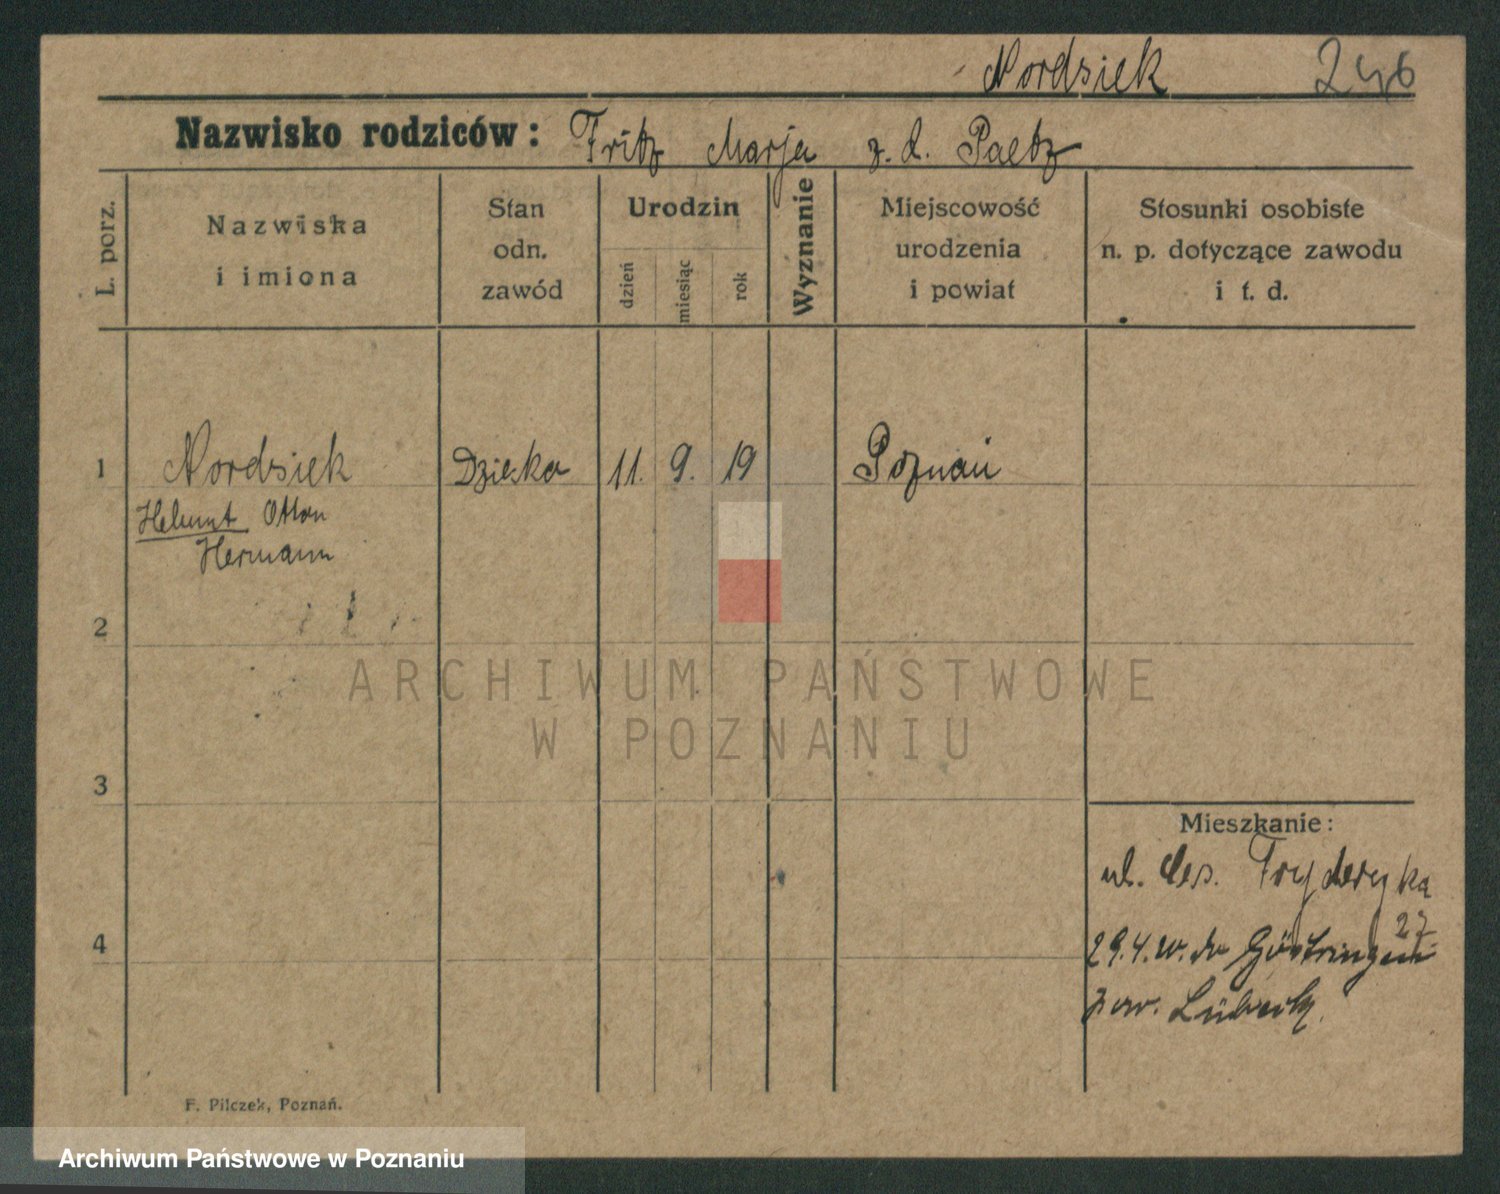 Nordsiek 246
Nazwisko rodziców: Fritz Marja z. d. Paetz
L. porz.
Nazwiska
i imiona
Stan
odn.
zawód
Urodzin
dzień
miesiąc
rok
Wyznanie
Miejscowość
urodzenia
i powiat
Stosunki osobiste
n. p. dotyczące zawodu
i t. d.
1 Nordsiek Dziecko 11. 9. 19 Poznań
Helmut Otton
Hermann
2
ARCHIWUM PAŃSTWOWE
W POZNANIU
3
Mieszkanie:
ul. Ces. Fryderyka
27
4
29.4. w. do
pow. Lübeck.
F. Pilczek, Poznań.
Archiwum Państwowe w Poznaniu